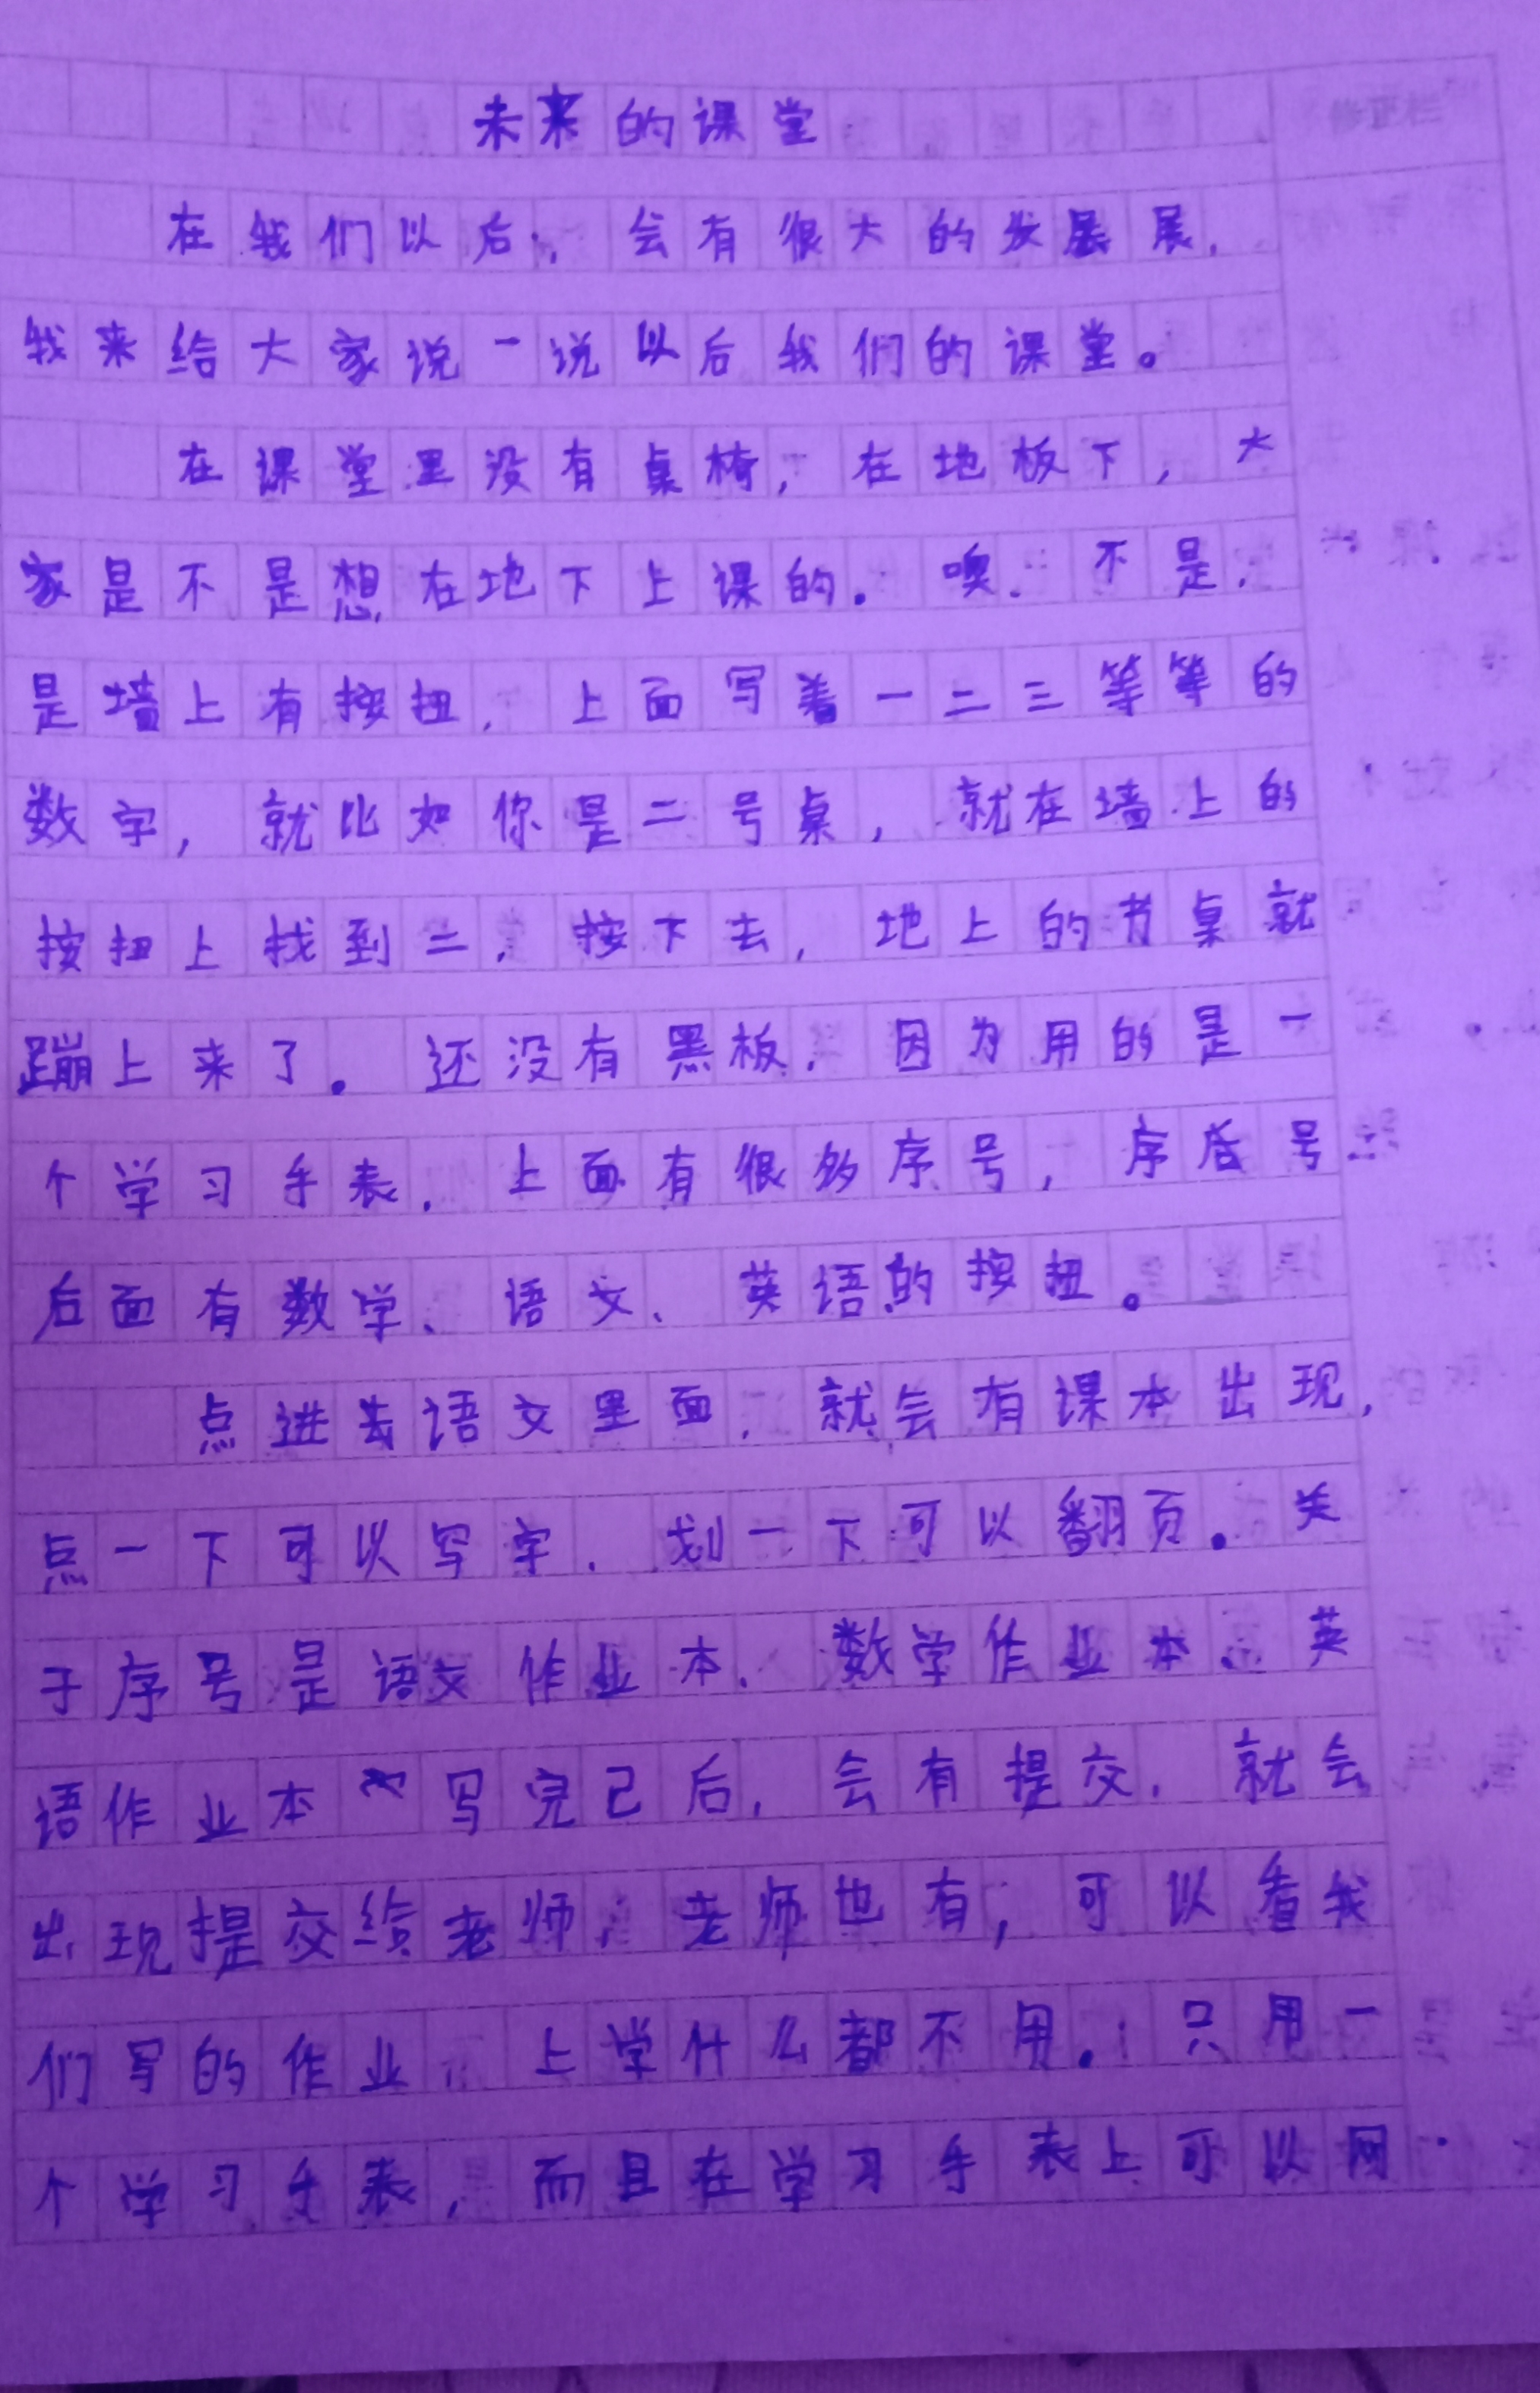 未来的课堂
修正栏
在我们以后，会有很大的发展展，
我来给大家说一说以后我们的课堂。
在课堂里没有桌椅，在地板下，大
家是不是想在地下上课的。噢．不是，
是墙上有按扭，上面写着一二三等等的
数字，就比如你是二号桌，就在墙上的
按扭上找到二，按下去，地上的书桌就
蹦上来了。还没有黑板，因为用的是一
个学习手表，上面有很多序号，序后号
后面有数学、语文、英语的按扭。
点进去语文里面，就会有课本出现，
点一下可以写字，划一下可以翻页。关
于序号是语文作业本、数学作业本、英
语作业本写完己后，会有提交，就会
出现提交给老师，老师也有，可以看我
们写的作业，上学什么都不用。只用一
个学习手表，而且在学习手表上可以网